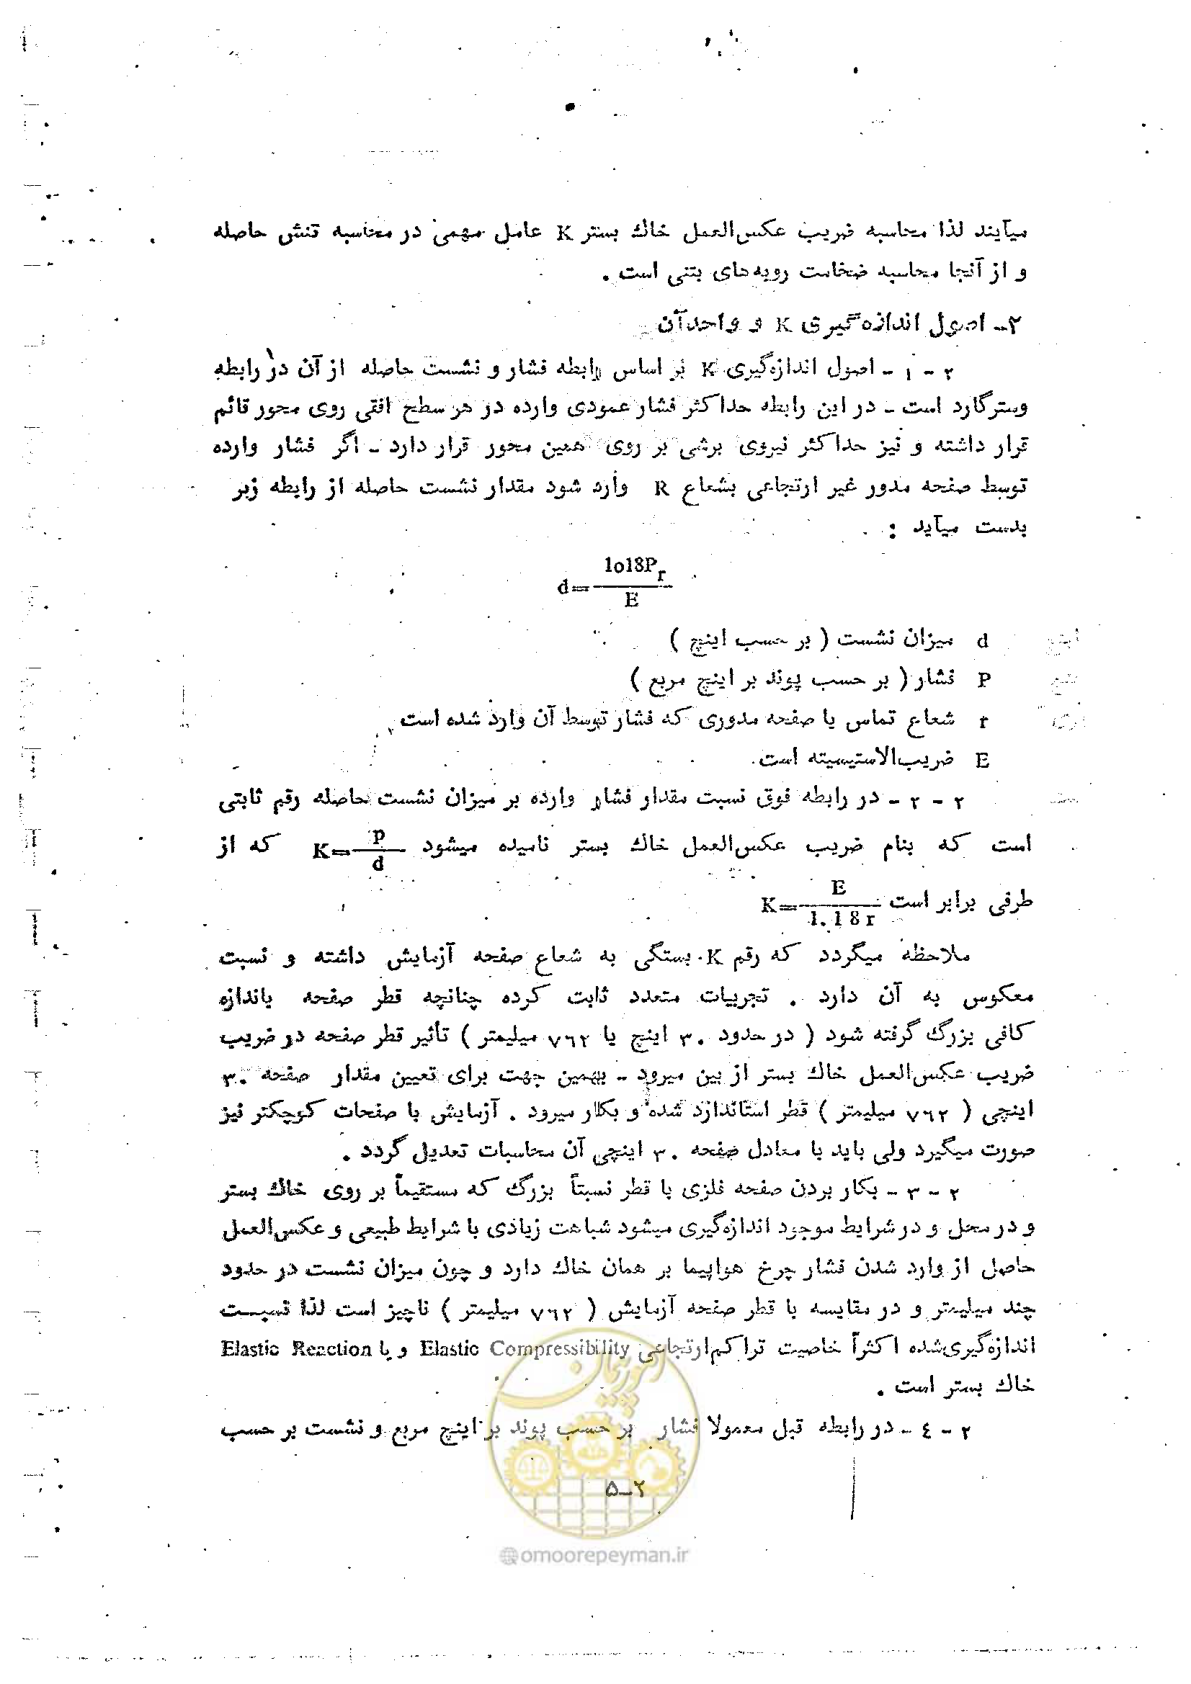 میآیند لذا محاسبه ضریب عکس‌العمل خاك بستر K عامل مهمی در محاسبه تنش حاصله
و از آنجا محاسبه ضخامت رویه‌های بتنی است .
۲ـ اصول اندازه‌گیری K و واحدآن
۲ - ۱ - اصول اندازه‌گیری K بر اساس رابطه فشار و نشست حاصله از آن در رابطه
وسترگارد است ـ در این رابطه حداکثر فشار عمودی وارده در هر سطح افقی روی محور قائم
قرار داشته و نیز حداکثر نیروی برشی بر روی همین محور قرار دارد ـ اگر فشار وارده
توسط صفحه مدور غیر ارتجاعی بشعاع R وارد شود مقدار نشست حاصله از رابطه زیر
بدست میآید :
d=1o18Pr/E
d میزان نشست ( بر حسب اینچ )
P فشار ( بر حسب پوند بر اینچ مربع )
r شعاع تماس یا صفحه مدوری که فشار توسط آن وارد شده است
E ضریب‌الاستیسیته است.
۲ - ۲ - در رابطه فوق نسبت مقدار فشار وارده بر میزان نشست حاصله رقم ثابتی
است که بنام ضریب عکس‌العمل خاك بستر نامیده میشود K=p/d که از
طرفی برابر است K=E/1.18r
ملاحظه میگردد که رقم K بستگی به شعاع صفحه آزمایش داشته و نسبت
معکوس به آن دارد . تجربیات متعدد ثابت کرده چنانچه قطر صفحه باندازه
کافی بزرگ گرفته شود ( در حدود ۳۰ اینچ یا ۷۶۲ میلیمتر ) تأثیر قطر صفحه در ضریب
ضریب عکس‌العمل خاك بستر از بین میرود ـ بهمین جهت برای تعیین مقدار صفحه ۳۰
اینچی ( ۷۶۲ میلیمتر ) قطر استاندارد شده و بکار میرود . آزمایش با صفحات کوچکتر نیز
صورت میگیرد ولی باید با معادل صفحه ۳۰ اینچی آن محاسبات تعدیل گردد .
۲ - ۳ - بکار بردن صفحه فلزی با قطر نسبتاً بزرگ که مستقیماً بر روی خاك بستر
و در محل و در شرایط موجود اندازه‌گیری میشود شباهت زیادی با شرایط طبیعی و عکس‌العمل
حاصل از وارد شدن فشار چرخ هواپیما بر همان خاك دارد و چون میزان نشست در حدود
چند میلیمتر و در مقایسه با قطر صفحه آزمایش ( ۷۶۲ میلیمتر ) ناچیز است لذا نسبت
اندازه‌گیری‌شده اکثراً خاصیت تراکم‌ارتجاعی Elastic Compressibility و یا Elastic Reaction
خاك بستر است .
۲ - ٤ - در رابطه قبل معمولا فشار بر حسب پوند بر اینچ مربع و نشست بر حسب
۵ـ۲
امور پیمان
@omoorepeyman.ir